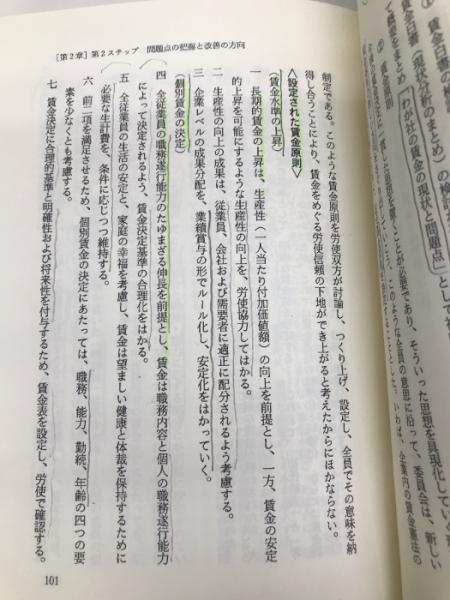 ① 賃金白書の
賃金白書（現状分析のまとめ）の検討
「わが社の賃金の現状と問題点」として
［第２章］第２ステップ　問題点の把握と改善の方向
制定である。このような賃金原則を労使双方が討論し、つくり上げ、設定し、全員でその意味を納
得し合うことにより、賃金をめぐる労使信頼の下地ができ上がると考えたからにほかならない。
〈設定された賃金原則〉
（賃金水準の上昇）
一　長期的賃金の上昇は、生産性（一人当たり付加価値額）の向上を前提とし、一方、賃金の安定
的上昇を可能にするような生産性の向上を、労使協力してはかる。
二　生産性の向上の成果は、従業員、会社および需要者に適正に配分されるよう考慮する。
三　企業レベルの成果分配を、業績賞与の形でルール化し、安定化をはかっていく。
（個別賃金の決定）
四　全従業員の職務遂行能力のたゆまざる伸長を前提とし、賃金は職務内容と個人の職務遂行能力
によって決定されるよう、賃金決定基準の合理化をはかる。
五　全従業員の生活の安定と、家庭の幸福を考慮し、賃金は望ましい健康と体裁を保持するために
必要な生計費を、条件に応じつつ維持する。
六　前二項を満足させるため、個別賃金の決定にあたっては、職務、能力、勤続、年齢の四つの要
素を少なくとも考慮する。
七　賃金決定に合理的基準と明確性および将来性を付与するため、賃金表を設定し、労使で確認する。
101